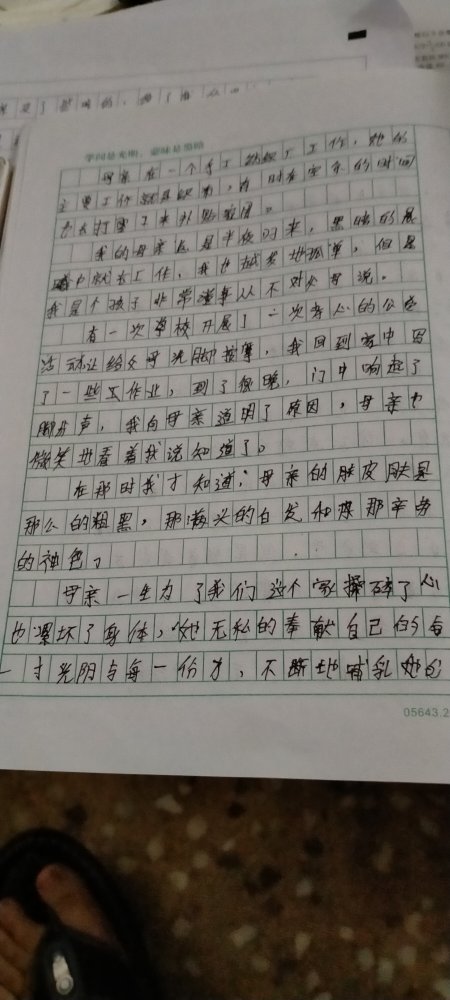 学问是光明，蒙昧是黑暗
母亲在一个手工 工工作，她的
主要工作就是织 ，有时在空余的时间
去打零工来补贴家用。
我的母亲总是半夜回来，黑暗的晨
也就去工作，我也越发地孤单，但是
我是个孩子非常懂事从不对父母说。
有一次学校开展了一次孝心的公益
活动让给父母洗脚按摩，我回到家中写
了一些作业，到了傍晚，门中响起了
脚步声，我向母亲道明了原因，母亲也
微笑地看着我说知道了。
在那时我才知道：母亲的 皮肤是
那么的粗黑，那满头的白发和 那辛劳
的神色。
母亲一生为了我们这个家操碎了心
也累坏了身体，她无私的奉献自己的每
一寸光阴与每一份力，不断地哺乳她的
05643.2